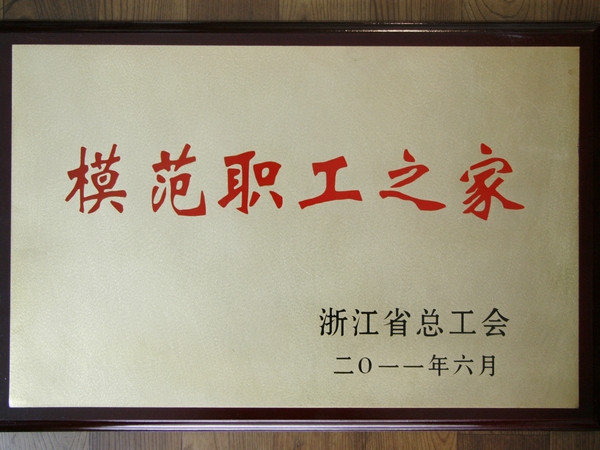 模范职工之家
浙江省总工会
二〇一一年六月